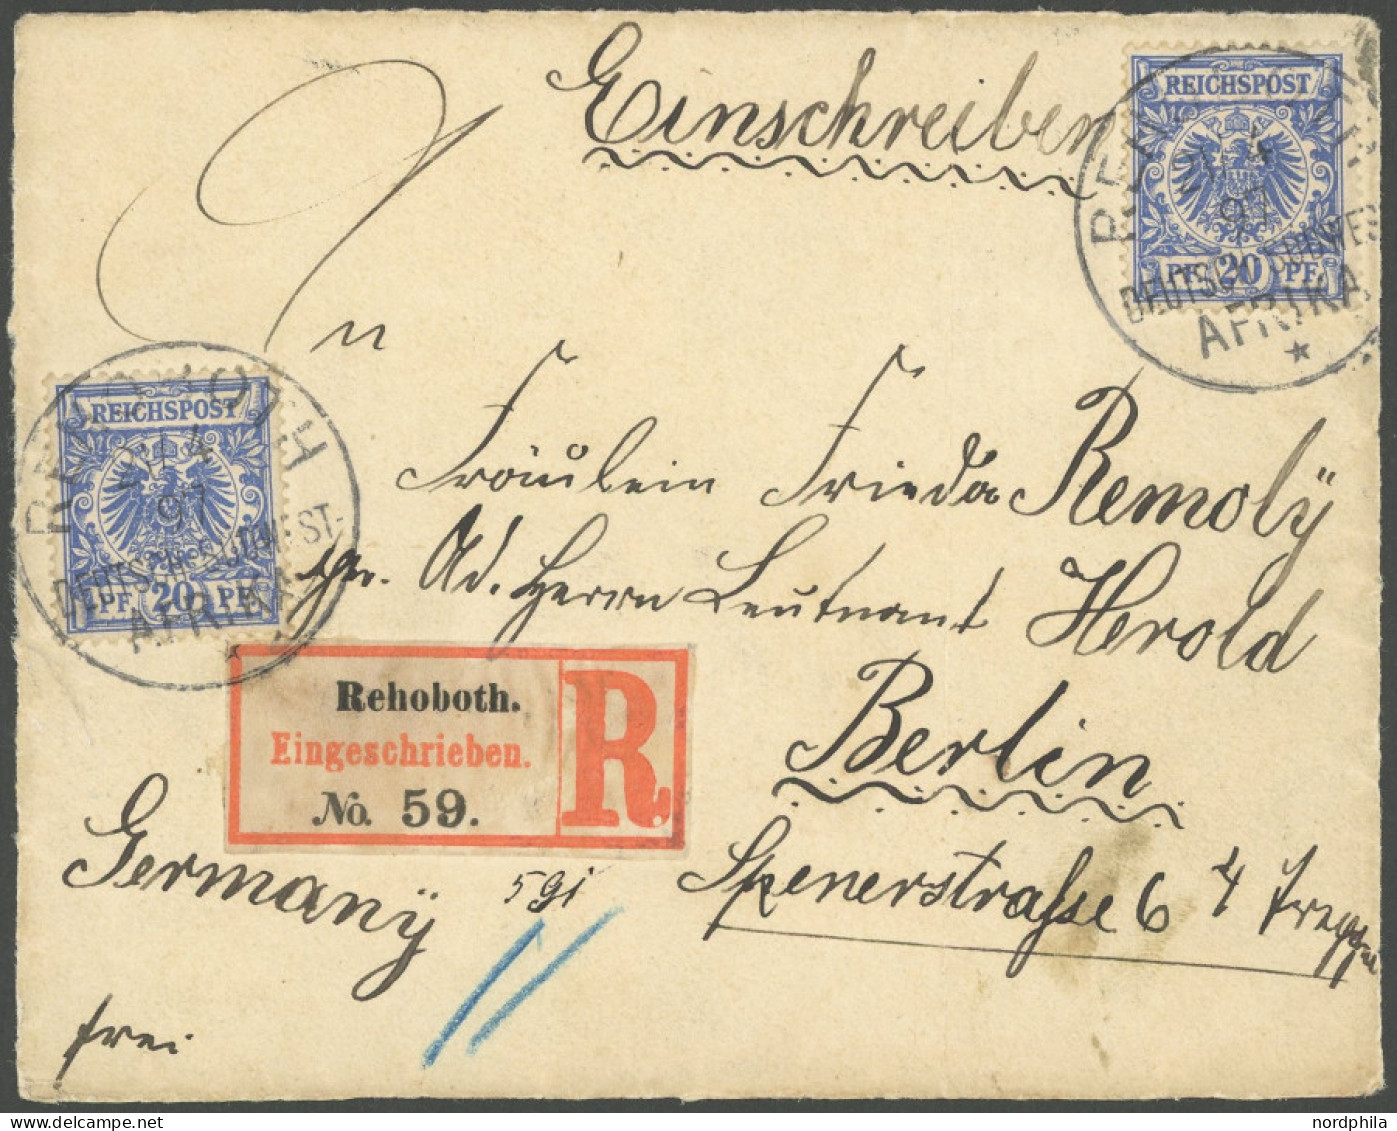 Einschreiben
REICHSPOST
PF 20 PF.
REHOBOTH
4
97
DEUTSCH-SÜDWEST-
AFRIKA
An
REICHSPOST
PF 20 PF.
REHOBOTH
4
97
DEUTSCH-SÜDWEST-
AFRIKA
Fräulein Frieda Remolÿ
pr. Ad. Herrn Leutnant Herold
Berlin
Spenerstraße 6 4
Rehoboth.
Eingeschrieben.
No. 59.
R
Germanÿ
frei
nordphila